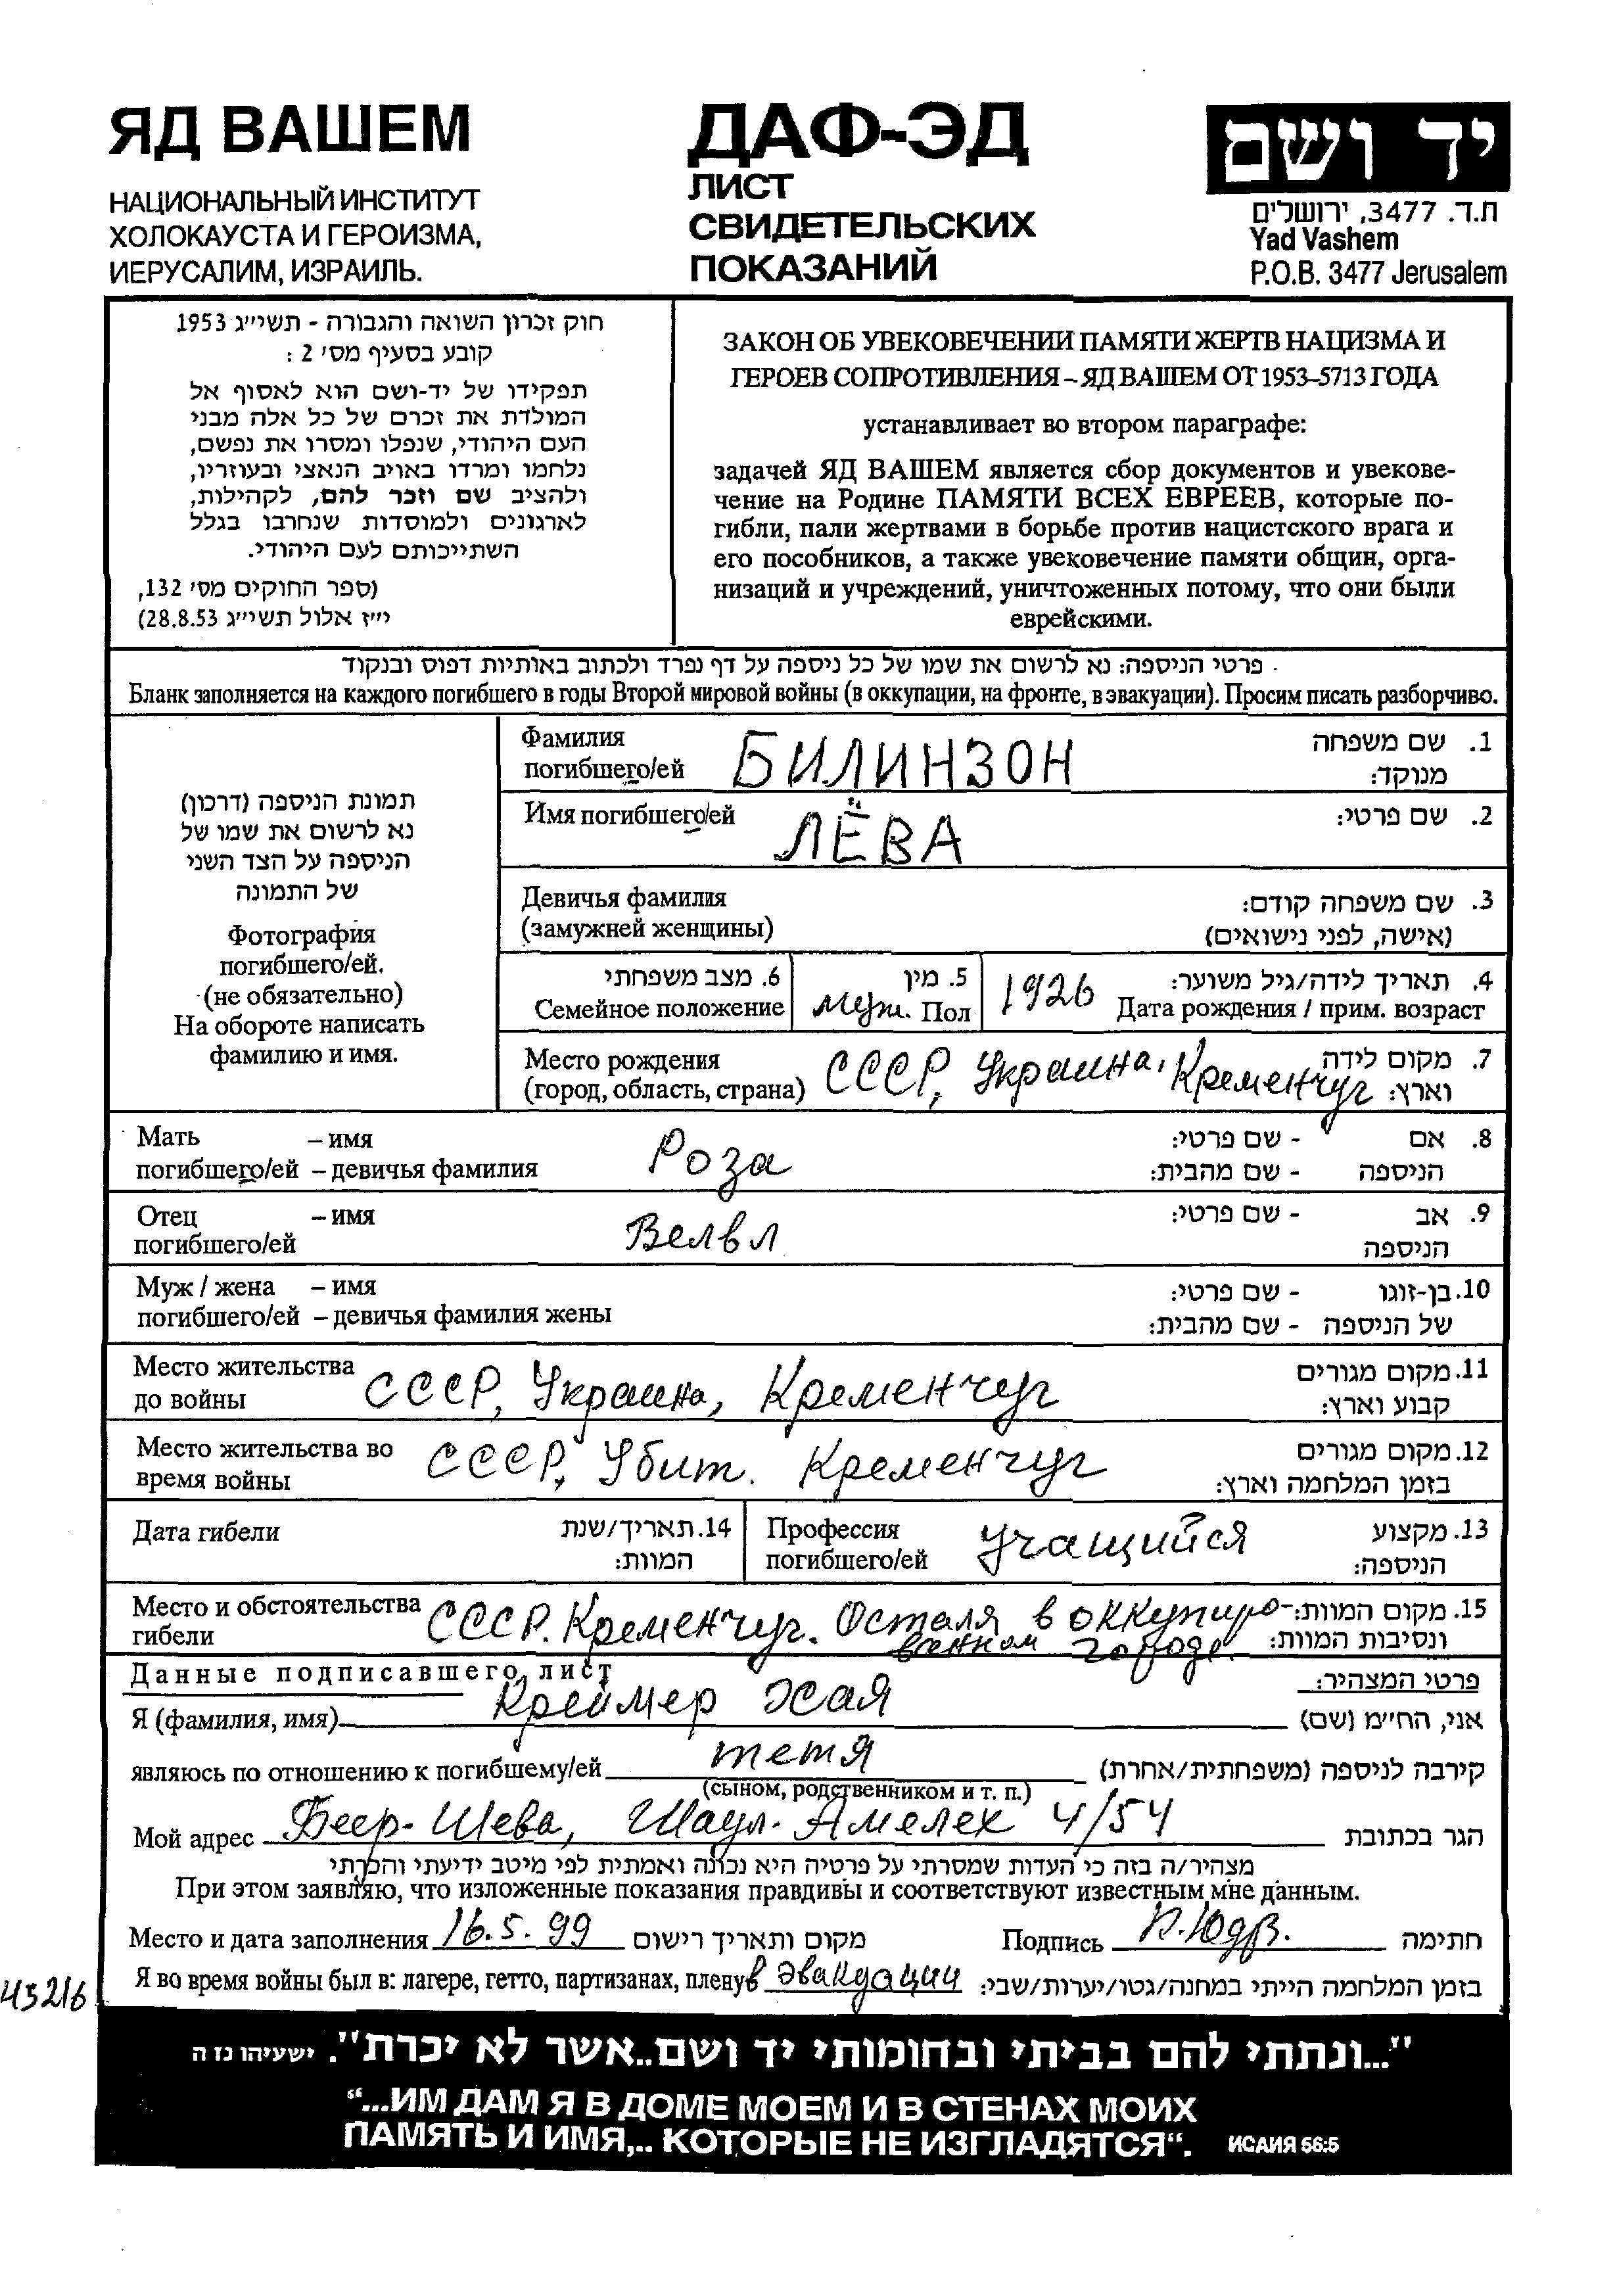 ЯД ВАШЕМ
НАЦИОНАЛЬНЫЙ ИНСТИТУТ
ХОЛОКАУСТА И ГЕРОИЗМА,
ИЕРУСАЛИМ, ИЗРАИЛЬ.
ДАФ-ЭД
ЛИСТ
СВИДЕТЕЛЬСКИХ
ПОКАЗАНИЙ
יד ושם
ת.ד. 3477, ירושלים
Yad Vashem
P.O.B. 3477 Jerusalem
חוק זכרון השואה והגבורה - תשי״ג 1953
קובע בסעיף מס׳ 2 :
תפקידו של יד-ושם הוא לאסוף אל
המולדת את זכרם של כל אלה מבני
העם היהודי, שנפלו ומסרו את נפשם,
נלחמו ומרדו באויב הנאצי ובעוזריו,
ולהציב שם וזכר להם, לקהילות,
לארגונים ולמוסדות שנחרבו בגלל
השתייכותם לעם היהודי.
(ספר החוקים מס׳ 132,
י״ז אלול תשי״ג 28.8.53)
ЗАКОН ОБ УВЕКОВЕЧЕНИИ ПАМЯТИ ЖЕРТВ НАЦИЗМА И
ГЕРОЕВ СОПРОТИВЛЕНИЯ – ЯД ВАШЕМ ОТ 1953–5713 ГОДА
устанавливает во втором параграфе:
задачей ЯД ВАШЕМ является сбор документов и увекове-
чение на Родине ПАМЯТИ ВСЕХ ЕВРЕЕВ, которые по-
гибли, пали жертвами в борьбе против нацистского врага и
его пособников, а также увековечение памяти общин, орга-
низаций и учреждений, уничтоженных потому, что они были
еврейскими.
פרטי הניספה: נא לרשום את שמו של כל ניספה על דף נפרד ולכתוב באותיות דפוס ובנקוד
Бланк заполняется на каждого погибшего в годы Второй мировой войны (в оккупации, на фронте, в эвакуации). Просим писать разборчиво.
תמונת הניספה (דרכון)
נא לרשום את שמו של
הניספה על הצד השני
של התמונה
Фотография
погибшего/ей.
(не обязательно)
На обороте написать
фамилию и имя.
Фамилия БИЛИНЗОН 1. שם משפחה
погибшего/ей מנוקד:
Имя погибшего/ей ЛЁВА 2. שם פרטי:
Девичья фамилия 3. שם משפחה קודם:
(замужней женщины) (אישה, לפני נישואים)
6. מצב משפחתי 5. מין 4. תאריך לידה/גיל משוער:
Семейное положение муж. Пол 1926 Дата рождения / прим. возраст
Место рождения СССР, Украина, Кременчуг 7. מקום לידה
(город, область, страна) וארץ:
Мать – имя Роза - שם פרטי: 8. אם
погибшего/ей – девичья фамилия - שם מהבית: הניספה
Отец – имя Велвл - שם פרטי: 9. אב
погибшего/ей הניספה
Муж / жена – имя - שם פרטי: 10. בן-זוגו
погибшего/ей – девичья фамилия жены - שם מהבית: של הניספה
Место жительства СССР, Украина, Кременчуг 11. מקום מגורים
до войны קבוע וארץ:
Место жительства во СССР, Убит. Кременчуг 12. מקום מגורים
время войны בזמן המלחמה וארץ:
Дата гибели 14. תאריך/שנת Профессия учащийся 13. מקצוע
המוות: погибшего/ей הניספה:
Место и обстоятельства СССР. Кременчуг. Осталя в оккупиро- 15. מקום המוות:
гибели ванном городе. ונסיבות המוות:
Данные подписавшего лист פרטי המצהיר:
Я (фамилия, имя) Креймер Хая אני, החי״מ (שם)
являюсь по отношению к погибшему/ей тетя קירבה לניספה (משפחתית/אחרת)
(сыном, родственником и т. п.)
Мой адрес Беер-Шева, Шаул-Амелех 4/54 הגר בכתובת
מצהיר/ה בזה כי העדות שמסרתי על פרטיה היא נכונה ואמתית לפי מיטב ידיעתי והכרתי
При этом заявляю, что изложенные показания правдивы и соответствуют известным мне данным.
Место и дата заполнения 16.5.99 מקום ותאריך רישום Подпись חתימה
Я во время войны был в: лагере, гетто, партизанах, плену в эвакуации בזמן המלחמה הייתי במחנה/גטו/יערות/שבי:
45216
"...ונתתי להם בביתי ובחומותי יד ושם..אשר לא יכרת". ישעיהו נז ה
“...ИМ ДАМ Я В ДОМЕ МОЕМ И В СТЕНАХ МОИХ
ПАМЯТЬ И ИМЯ,.. КОТОРЫЕ НЕ ИЗГЛАДЯТСЯ“. ИСАИЯ 56:5